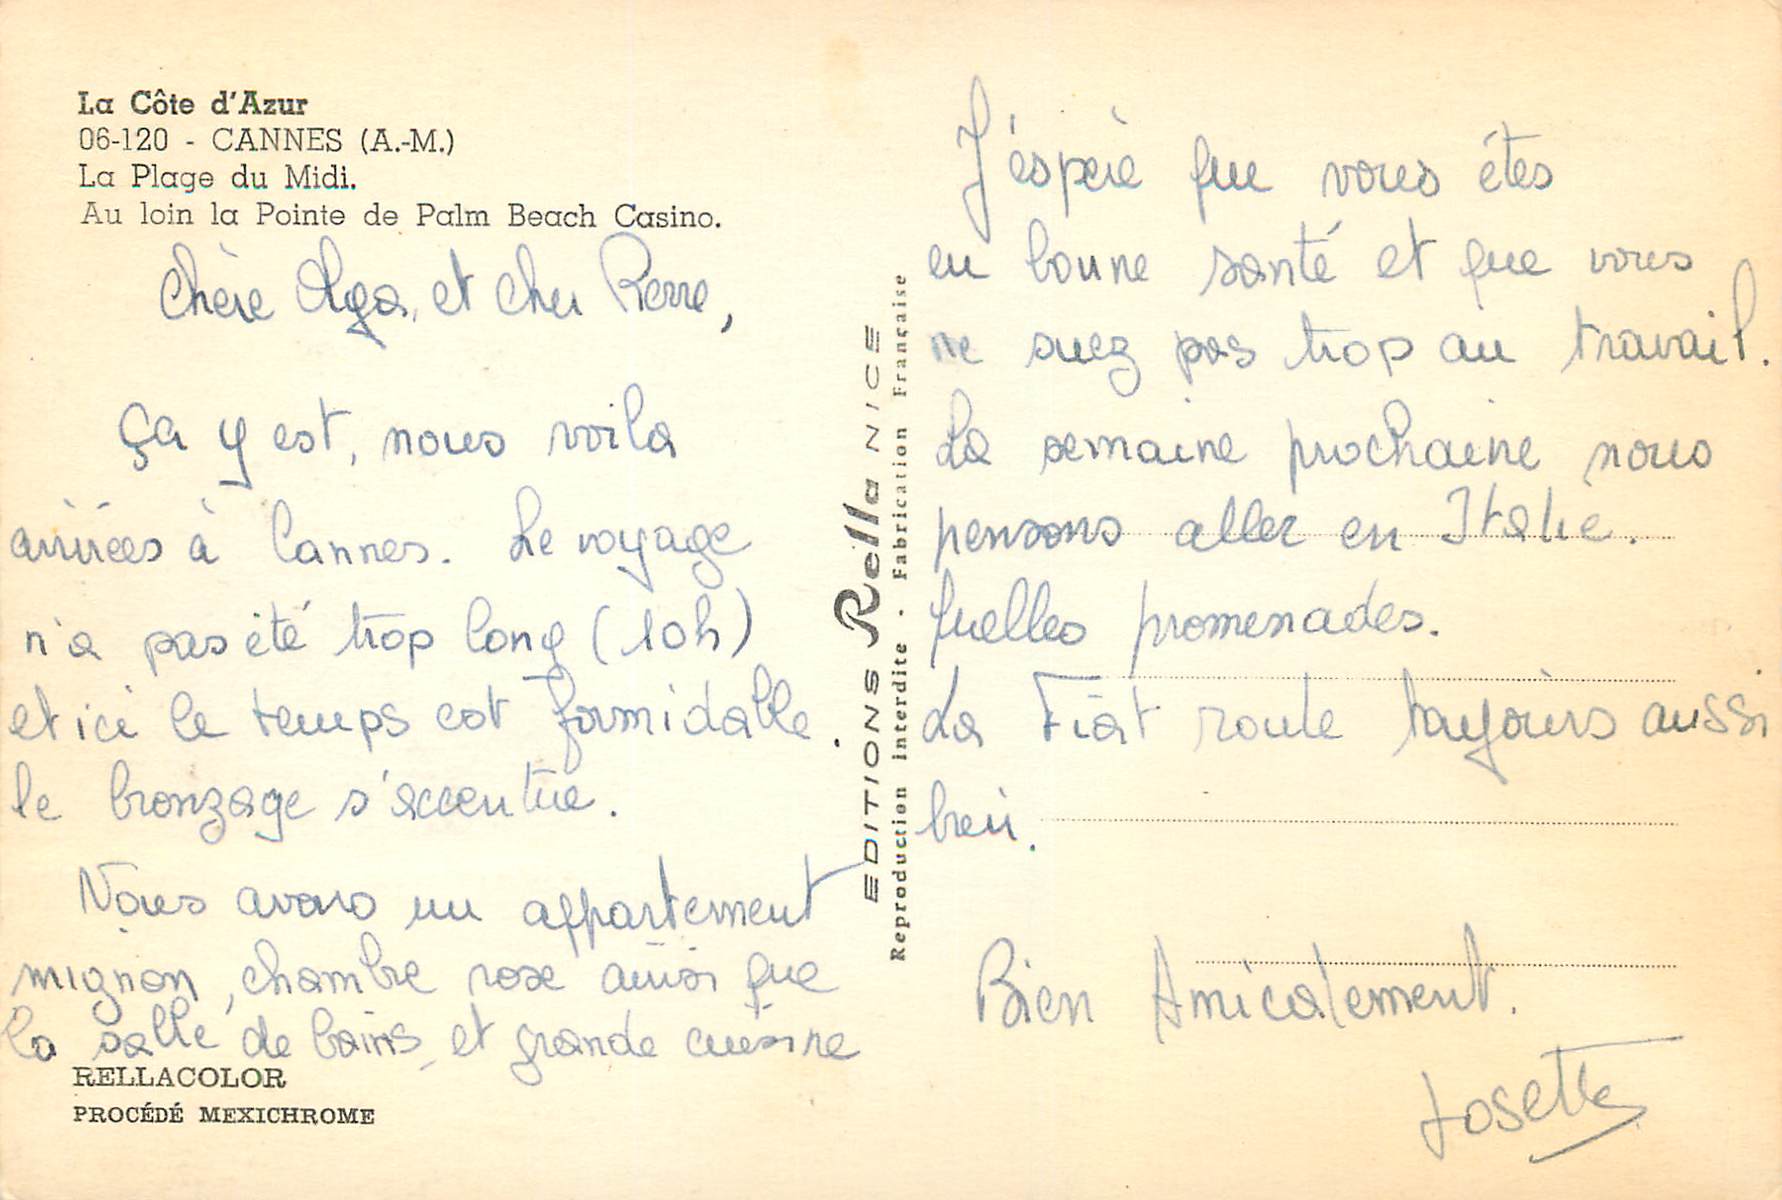 La Côte d'Azur
06-120 - CANNES (A.-M.)
La Plage du Midi.
Au loin la Pointe de Palm Beach Casino.
Chère Olga, et cher Pierre,
Ça y est, nous voila
arrivées à Cannes. Le voyage
n'a pas été trop long (10h)
et ici le temps est formidable.
le bronzage s'accentue.
Nous avons un appartement
mignon, chambre rose ainsi que
la salle de bains, et grande cuisine
RELLACOLOR
PROCÉDÉ MEXICHROME
EDITIONS Rella NICE
Reproduction Interdite - Fabrication Française
J'espère que vous êtes
en bonne santé et que vous
ne suez pas trop au travail.
La semaine prochaine nous
pensons aller en Italie.
Quelles promenades.
La Fiat roule toujours aussi
bien.
Bien Amicalement.
Josette